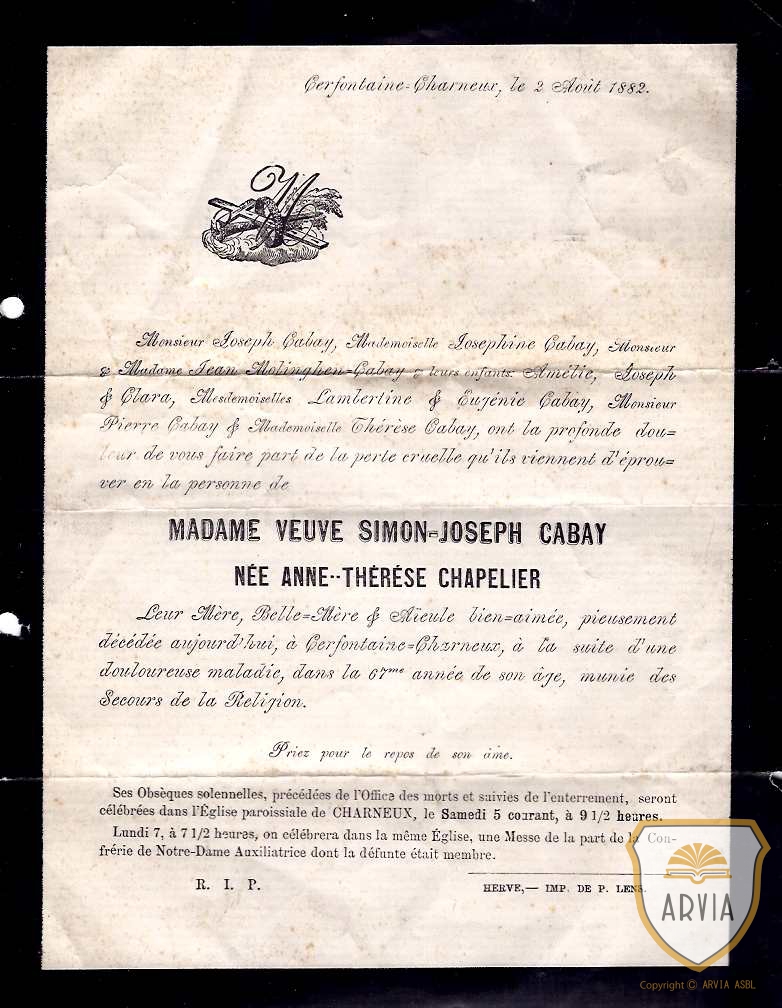 Cerfontaine=Charneux, le 2 Août 1882.
M
Monsieur Joseph Cabay, Mademoiselle Josephine Cabay, Monsieur
& Madame Jean Molinghen=Cabay & leurs enfants: Amélie, Joseph
& Clara, Mesdemoiselles Lambertine & Eugénie Cabay, Monsieur
Pierre Cabay & Mademoiselle Thérèse Cabay, ont la profonde dou=
leur de vous faire part de la perte cruelle qu'ils viennent d'éprou=
ver en la personne de
MADAME VEUVE SIMON=JOSEPH CABAY
NÉE ANNE--THÉRÉSE CHAPELIER
Leur Mère, Belle=Mère & Aïeule bien=aimée, pieusement
décédée aujourd'hui, à Cerfontaine=Charneux, à la suite d'une
douloureuse maladie, dans la 67me année de son âge, munie des
Secours de la Religion.
Priez pour le repos de son âme.
Ses Obsèques solennelles, précédées de l'Office des morts et suivies de l'enterrement, seront
célébrées dans l'Église paroissiale de CHARNEUX, le Samedi 5 courant, à 9 1/2 heures.
Lundi 7, à 7 1/2 heures, on célébrera dans la même Église, une Messe de la part de la Con-
frérie de Notre-Dame Auxiliatrice dont la défunte était membre.
R. I. P.
HERVE,— IMP. DE P. LENS.
ARVIA
Copyright © ARVIA ASBL